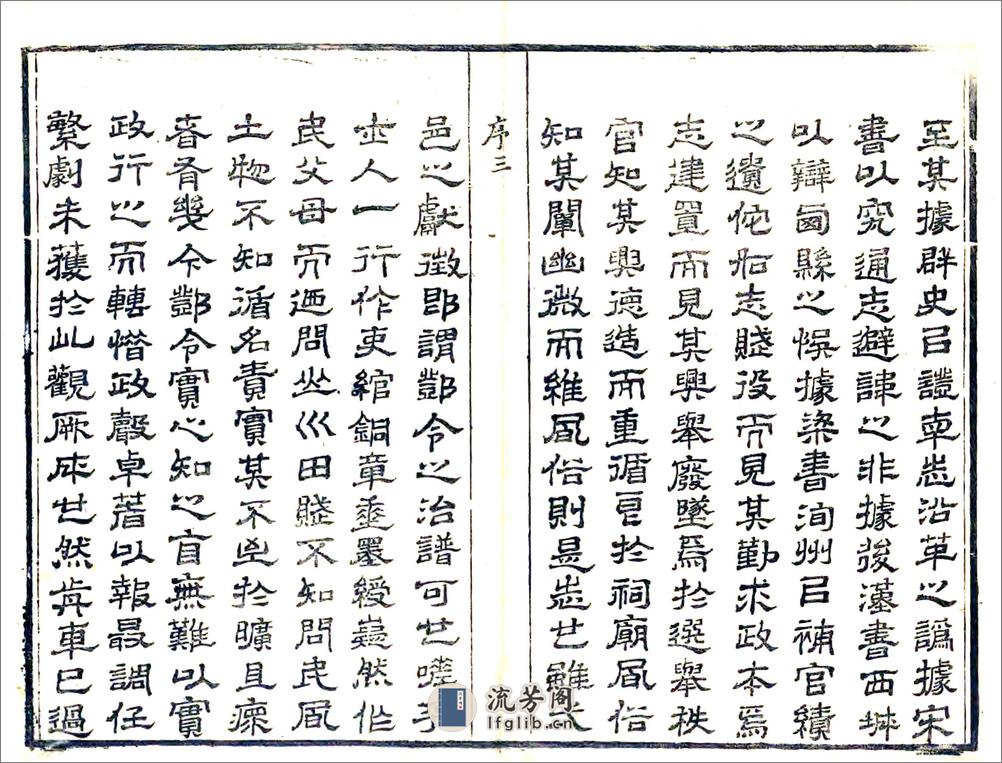 至其據群史㠯證志沿革之譌據宋
書以究通志避諱之非據後漢書西域
以辯縣之悞據梁書洵州㠯補官績
之遺佗若志賦役而見其勤求政本焉
志建置而見其興舉廢墜焉於選舉秩
官知其興德造而重循良於祠廟風俗
知其闡幽微而維風俗則是志也雖
序三
邑之獻徵即謂酆令之治譜可也嗟乎
士人一行作吏綰銅章垂墨綬嶷然作
民父母而迺問山川田賦不知問民風
土物不知循名責實其不至於曠且瘝
者有幾今酆令實心知之自無難以實
政行之而轉惜政聲卓著以報最調任
繁劇未獲於此觀厥成也然前車已過
流芳阁
lfglib.cn